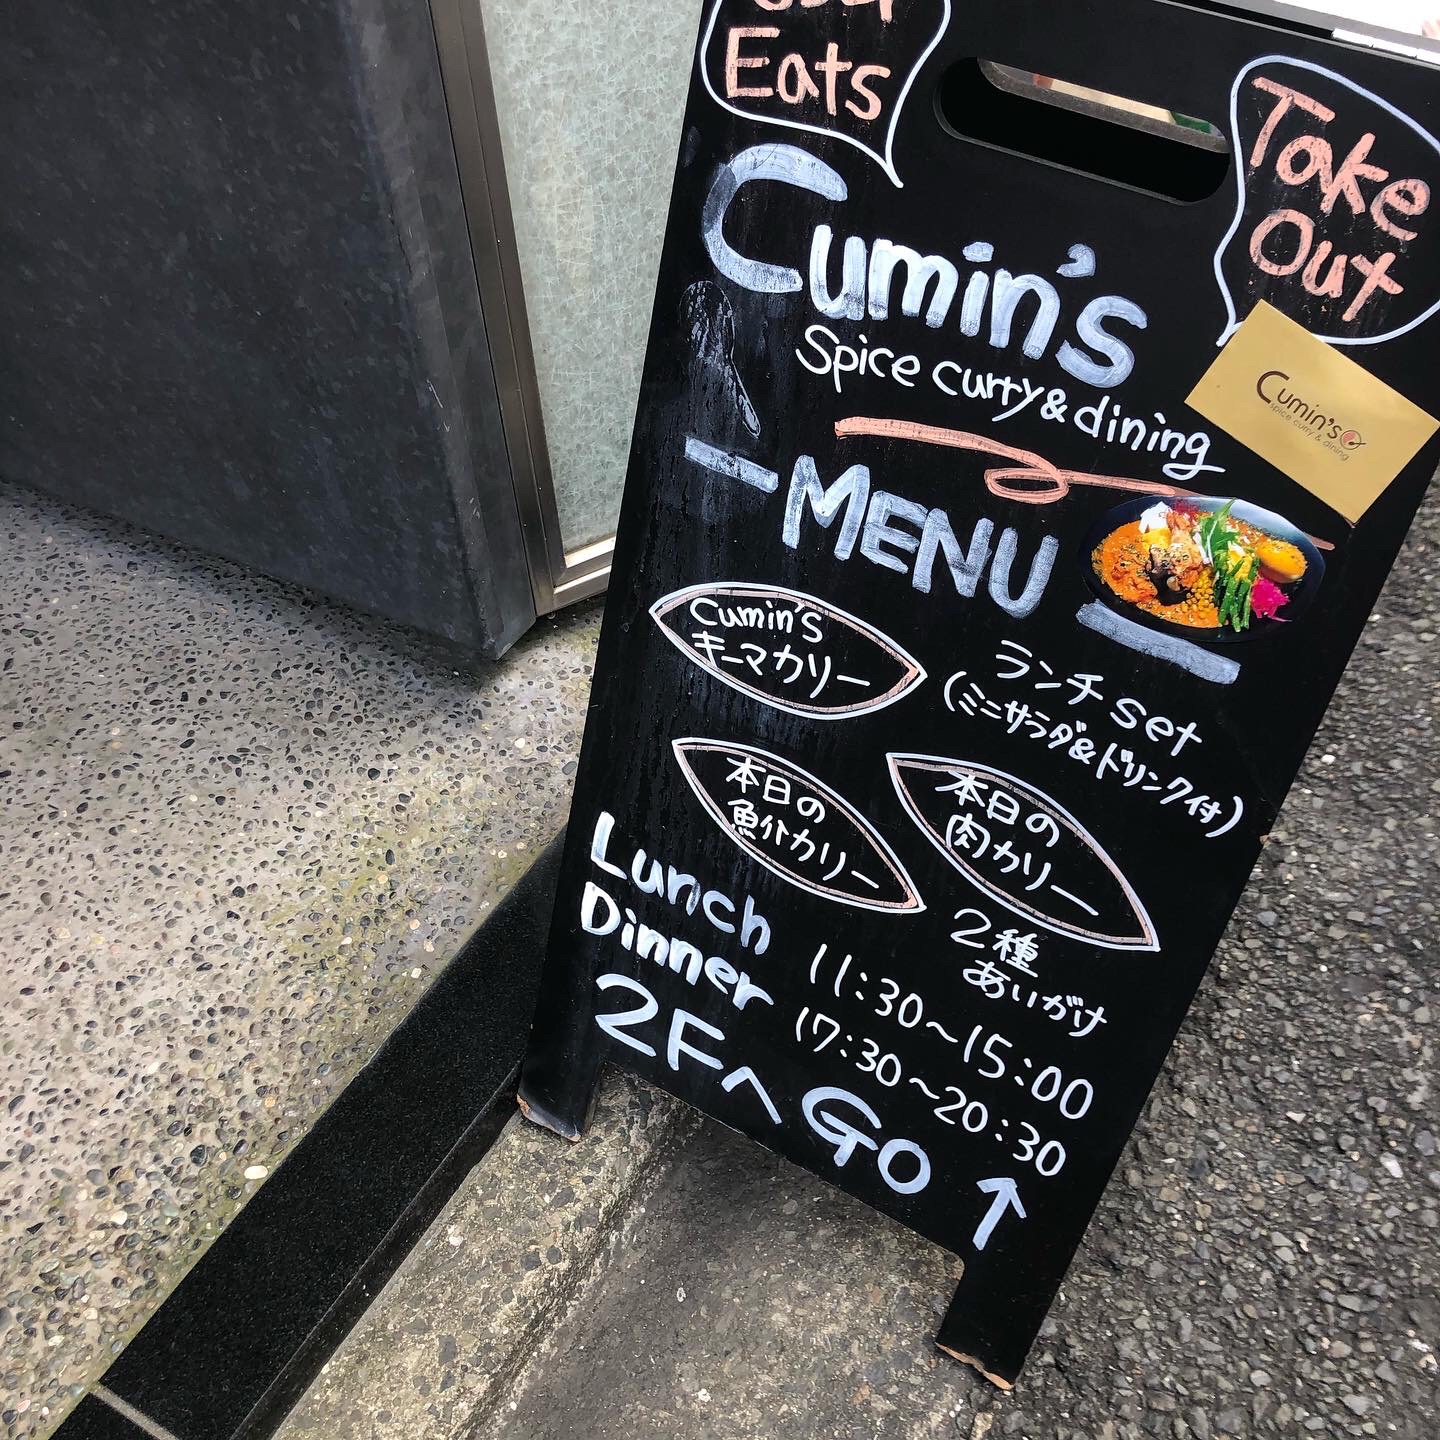 Eats
Take
Out
Cumin's
Spice curry & dining
Cumin's
spice curry & dining
MENU
Cumin's
キーマカリー
ランチ set
(ミニサラダ&ドリンク付)
本日の
魚介カリー
本日の
肉カリー
2種
あいがけ
Lunch 11:30~15:00
Dinner 17:30~20:30
2Fへ GO ↑